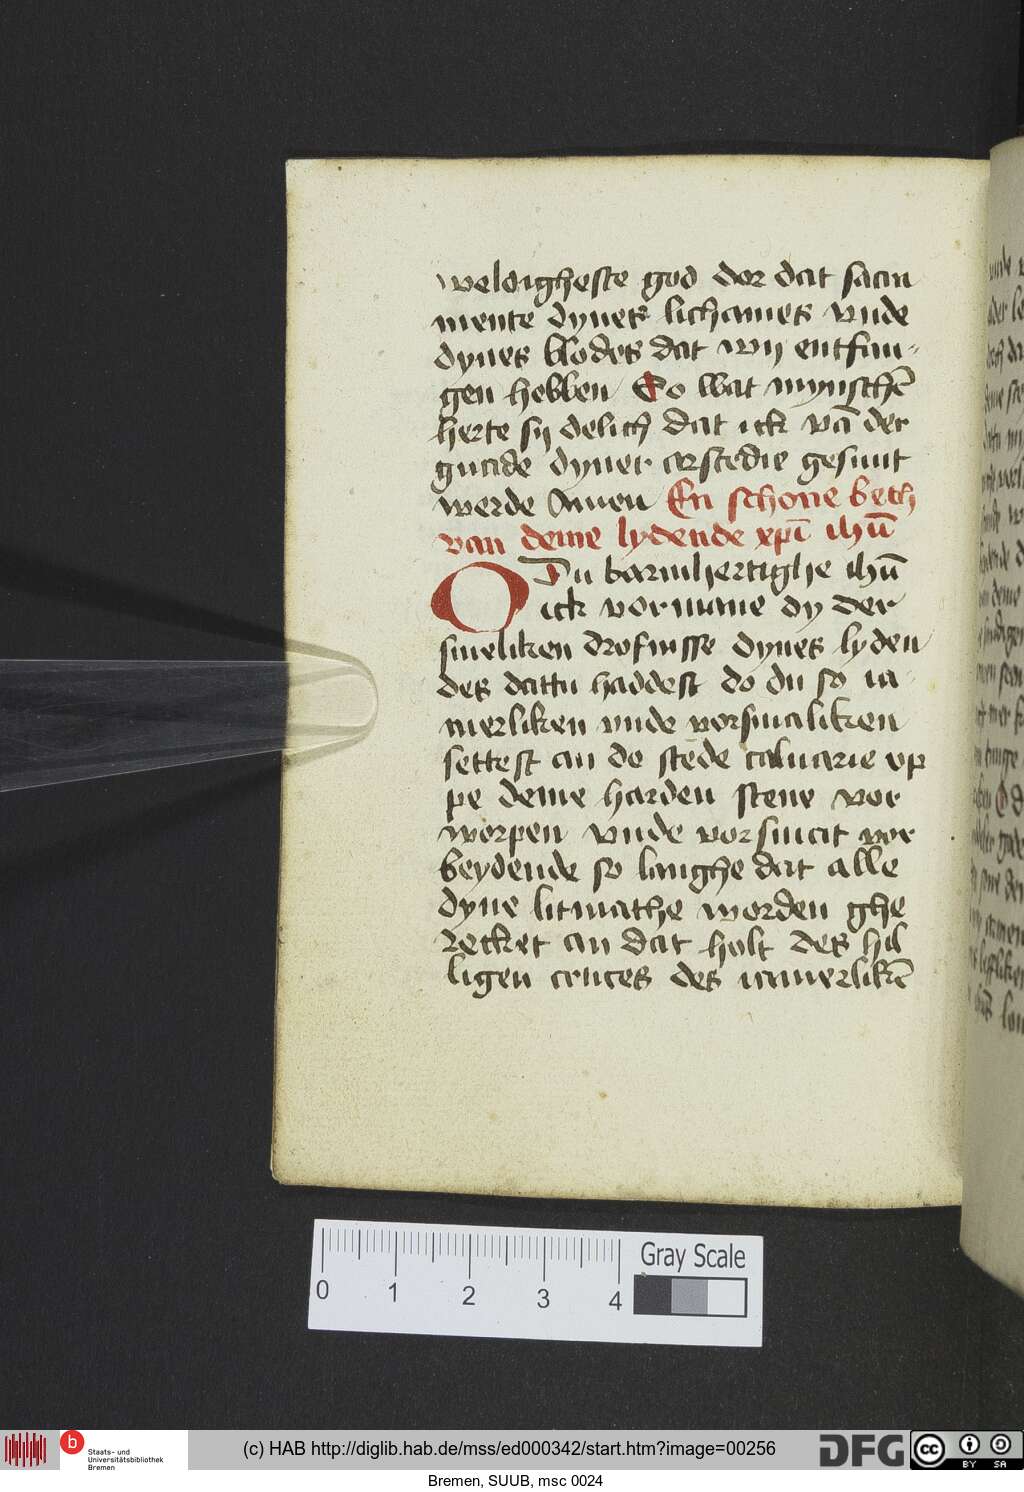 weldigheste god dor dat sacra
mente dynes lichames vnde
dynes blodes dat wy entfan-
gen hebben So wat mynschē
herte sy delich dat ick vā der
gnade dyner arstedie gesunt
werde Amen En schone beth
van deme lydende xpī ihū
O Du barmhertighe ihū
ick vormane dy der
smeliken drofnisse dynes lyden
des dattu haddest do du so ia-
merliken vnde vorsmaliken
settest an de stede caluarie vp
pe deme harden stene vor
worpen vnde vorsmat vor
beydende so langhe dat alle
dyne litmathe worden ghe
recket an dat holt des hil
ligen cruces des iamerlikē
0 1 2 3 4
Gray Scale
b
Staats- und
Universitätsbibliothek
Bremen
(c) HAB http://diglib.hab.de/mss/ed000342/start.htm?image=00256
DFG
cc BY SA
Bremen, SUUB, msc 0024